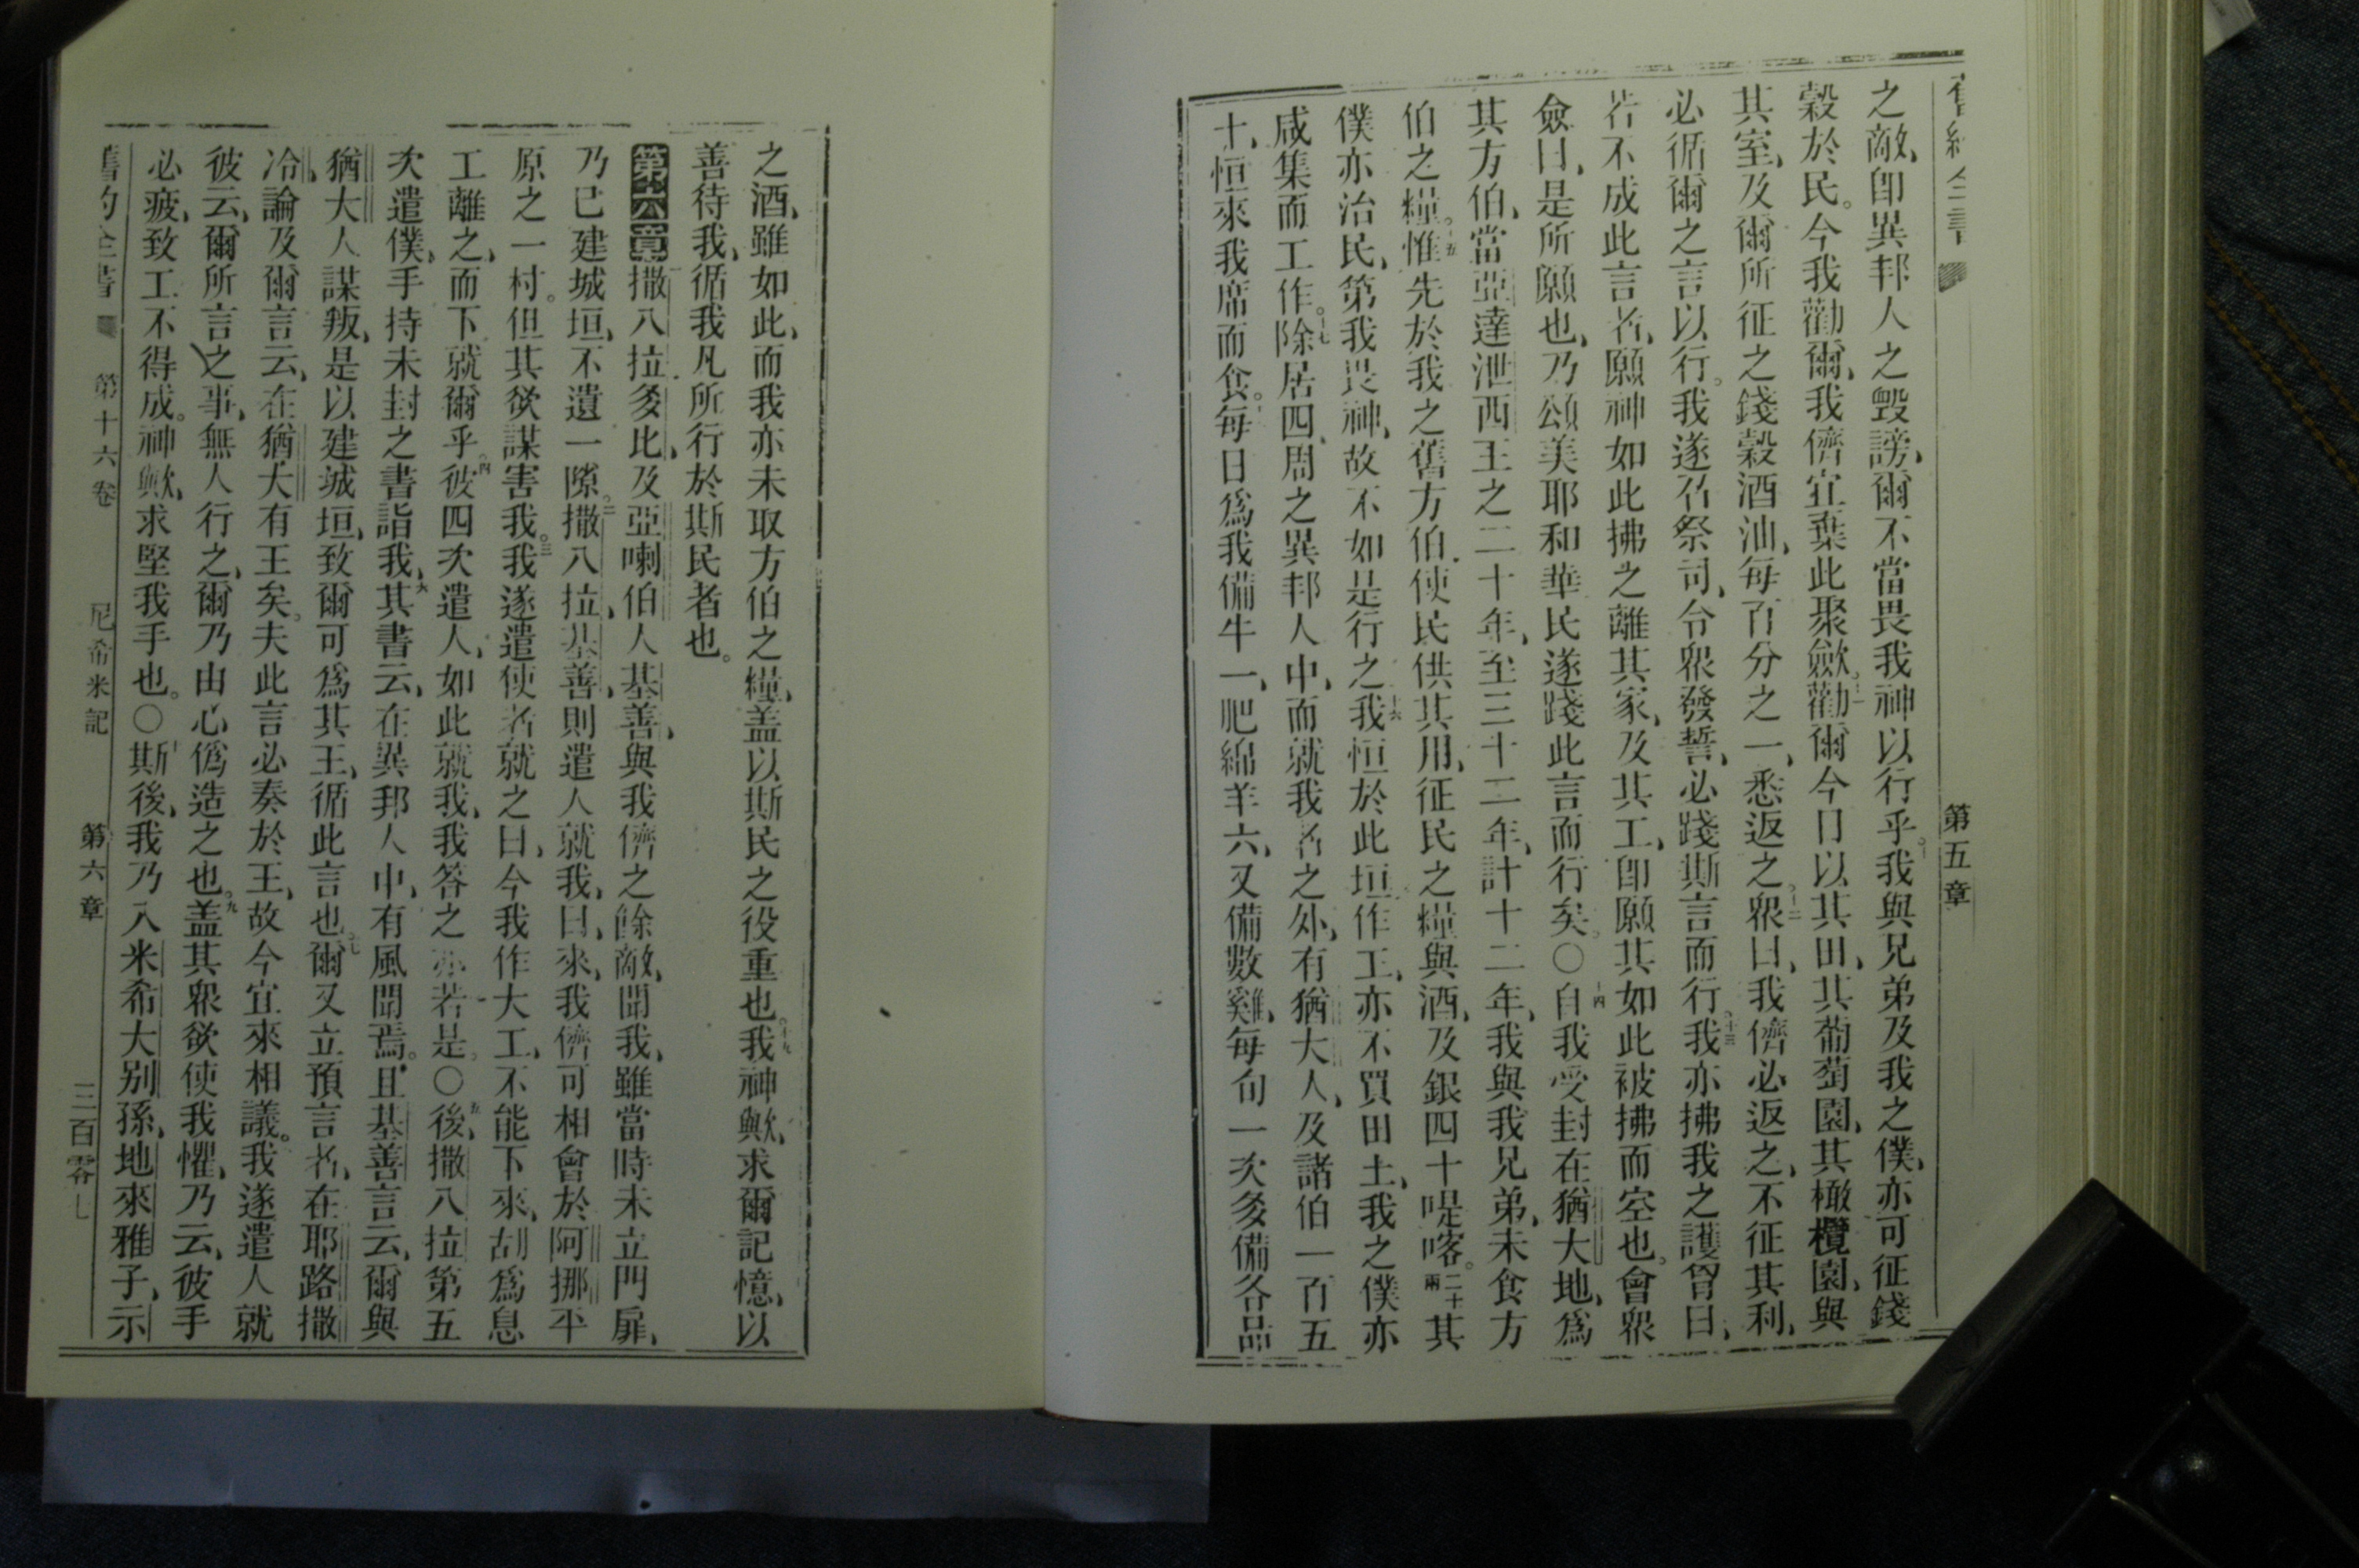 第五章
之敵、卽異邦人之毀謗、爾不當畏我神以行乎。十我與兄弟及我之僕、亦可征錢
穀於民。今我勸爾、我儕宜棄此聚歛。十一勸爾今日以其田、其葡萄園、其橄欖園、與
其室、及爾所征之錢穀酒油、每百分之一、悉返之。十二眾曰、我儕必返之、不征其利、
必循爾之言以行。我遂召祭司、令眾發誓、必踐斯言而行。十三我亦拂我之護胷曰、
若不成此言者、願神如此拂之離其家、及其工、卽願其如此被拂而空也。會眾
僉曰、是所願也、乃頌美耶和華民遂踐此言而行矣。○十四自我受封在猶大地、爲
其方伯、當亞達泄西王之二十年、至三十二年、計十二年、我與我兄弟、未食方
伯之糧。十五惟先於我之舊方伯、使民供其用、征民之糧與酒、及銀四十㖷喀。二十兩其
僕亦治民、第我畏神、故不如是行之十六我恒於此垣作工、亦不買田土、我之僕亦
咸集而工作。十七除居四周之異邦人中、而就我者之外、有猶大人、及諸伯一百五
十、恒來我席而食。每日爲我備牛一、肥綿羊六、又備數雞、每旬一次多備各品
之酒、雖如此、而我亦未取方伯之糧、盖以斯民之役重也。十九我神歟、求爾記憶、以
善待我、循我凡所行於斯民者也。
第六章撒八拉多比、及亞喇伯人基善、與我儕之餘敵、聞我、雖當時未立門扉、
乃已建城垣、不遺一隙。二撒八拉、基善、則遣人就我、曰、來、我儕可相會於阿挪平
原之一村。但其欲謀害我。三我遂遣使者就之曰、今我作大工、不能下來、胡爲息
工離之、而下就爾乎。四彼四次遣人、如此就我、我答之亦若是。○五後、撒八拉第五
次遣僕、手持未封之書詣我、六其書云、在異邦人中、有風聞焉。且基善言云、爾與
猶大人謀叛、是以建城垣、致爾可爲其王、循此言也。七爾又立預言者、在耶路撒
冷、論及爾言云、在猶大有王矣。夫此言必奏於王、故今宜來相議。我遂遣人就
彼云、爾所言之事、無人行之、爾乃由心僞造之也。九盖其眾欲使我懼、乃云、彼手
必疲、致工不得成。神歟、求堅我手也。○十斯後、我乃入米希大別孫、地來雅子、示
舊約全書 第十六卷 尼希米記 第六章 三百零七